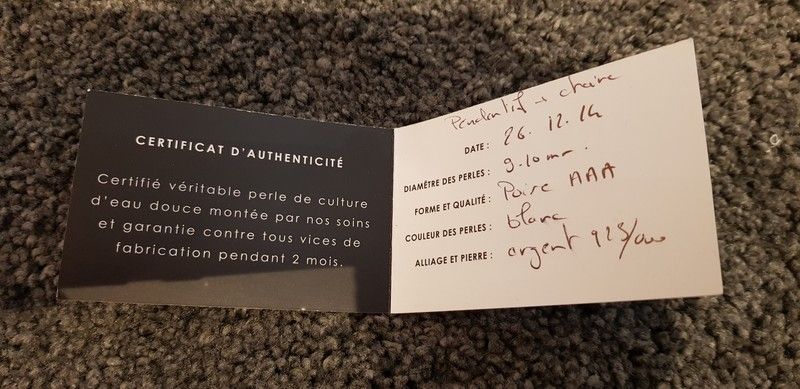 CERTIFICAT D'AUTHENTICITÉ
Certifié véritable perle de culture
d'eau douce montée par nos soins
et garantie contre tous vices de
fabrication pendant 2 mois.
Pendentif + chaine
DATE : 26.12.14
DIAMÈTRE DES PERLES : 9-10mm.
FORME ET QUALITÉ : Poire AAA
COULEUR DES PERLES : blanc
ALLIAGE ET PIERRE : argent 925/000